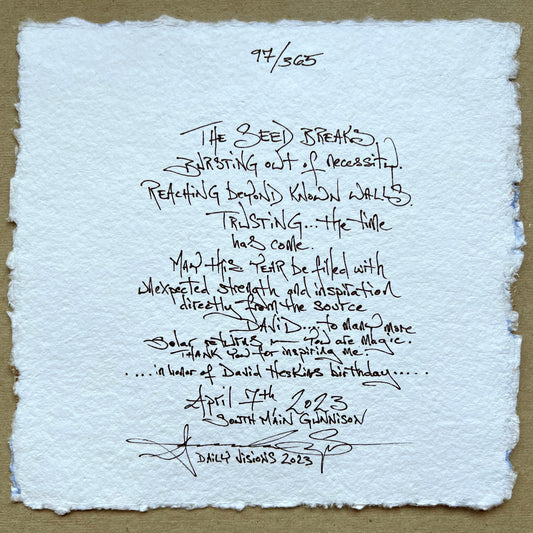 97/365
THE SEED BREAKS
BURSTING out of necessity.
REACHING beyond KNOWN WALLS.
TRUSTING...the time
has come.
MAY THIS YEAR be filled with
unexpected strength and inspiration
directly from the source
DAVID....to many more
solar returns – You are magic.
THANK YOU for inspiring me.
....in honor of David Heskins birthday.....
April 7th 2023
SOUTH MAIN GUNNISON
DAILY VISIONS 2023